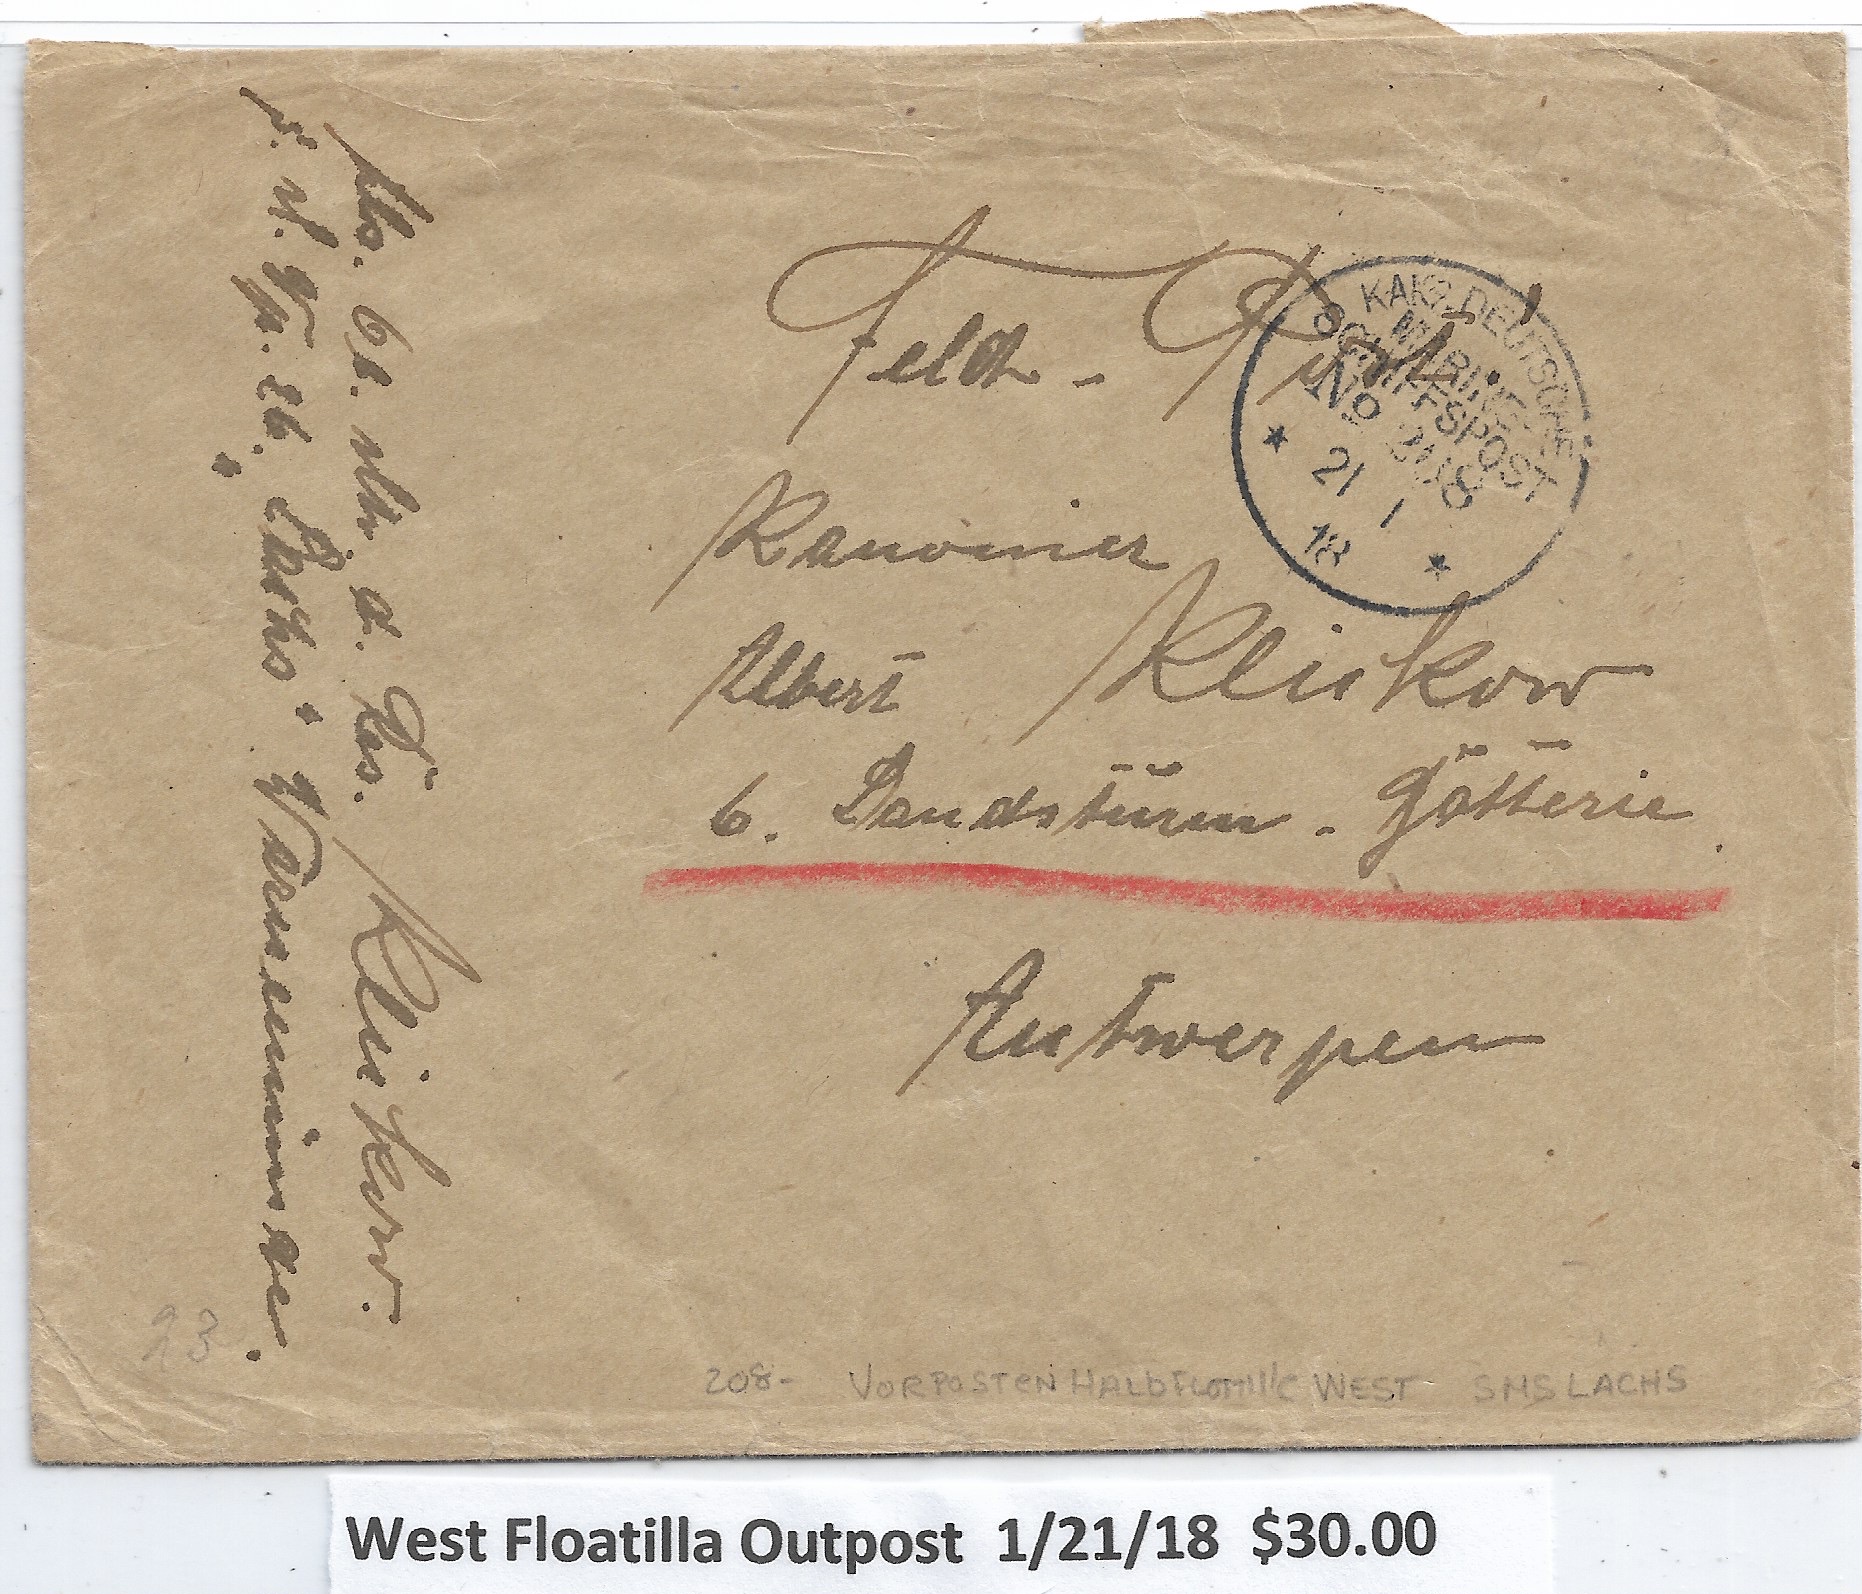 Feld-Post!
Kanonier
Albert Klickow
6. Landsturm-Batterie
Antwerpen
KAIS. DEUTSCHE
MARINE-
SCHIFFSPOST
No 208
21 1
18
d. Res. Klickow.
"Lachs" Warnemünde.
93
208- VORPOSTEN HALBFLOTTIllE WEST SMS LACHS
West Floatilla Outpost 1/21/18 $30.00